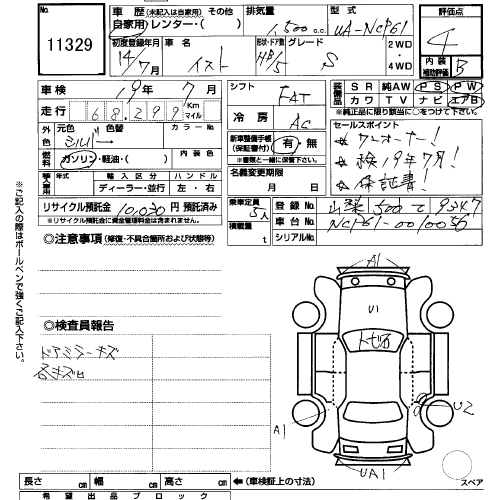 No.
11329
車歴 (未記入は自家用) その他
自家用 レンター・( )
排気量
1,500cc
型式
UA-NCP61
評価点
4
内装
補助評価
B
初度登録年月
14/7月
車名
イスト
形状・ドア数
HB/5
グレード
S
2WD
・
4WD
車検
19年 7月
シフト
FAT
装備品
SR 純AW PS PW
カワ TV ナビ エアB
※純正品に限り該当に○をつけて下さい。
走行
68,299
Km
マイル
冷房
AC
セールスポイント
ワンオーナー!
検19年7月!
保証書!
外色
元色 色替
シルバー
カラーNo.
新車整備手帳
(保証書付)
有・無
※書類と一緒に保管して下さい。
燃料
ガソリン・軽油・( )
内装色
名義変更期限
月 日
輸入車用
年式 輸入区分 ハンドル
ディーラー・並行 左・右
リサイクル預託金 10,030円 預託済み
※リサイクル預託金に資金管理料金は含まれません。
乗車定員
5人
積載量
t
登録No.
山梨 500 て 9347
車台No.
NCP61-0010056
シリアルNo.
◎注意事項 (修復・不具合箇所および状態等)
◎検査員報告
ドアミラーキズ
各キズ凹
A1
U1
トビ石
U2
A1
UA1
スペア
長さ cm 幅 cm 高さ cm ←(車検証上の寸法)
希望出品ブロック
※ご記入の際はボールペンで強くご記入下さい。